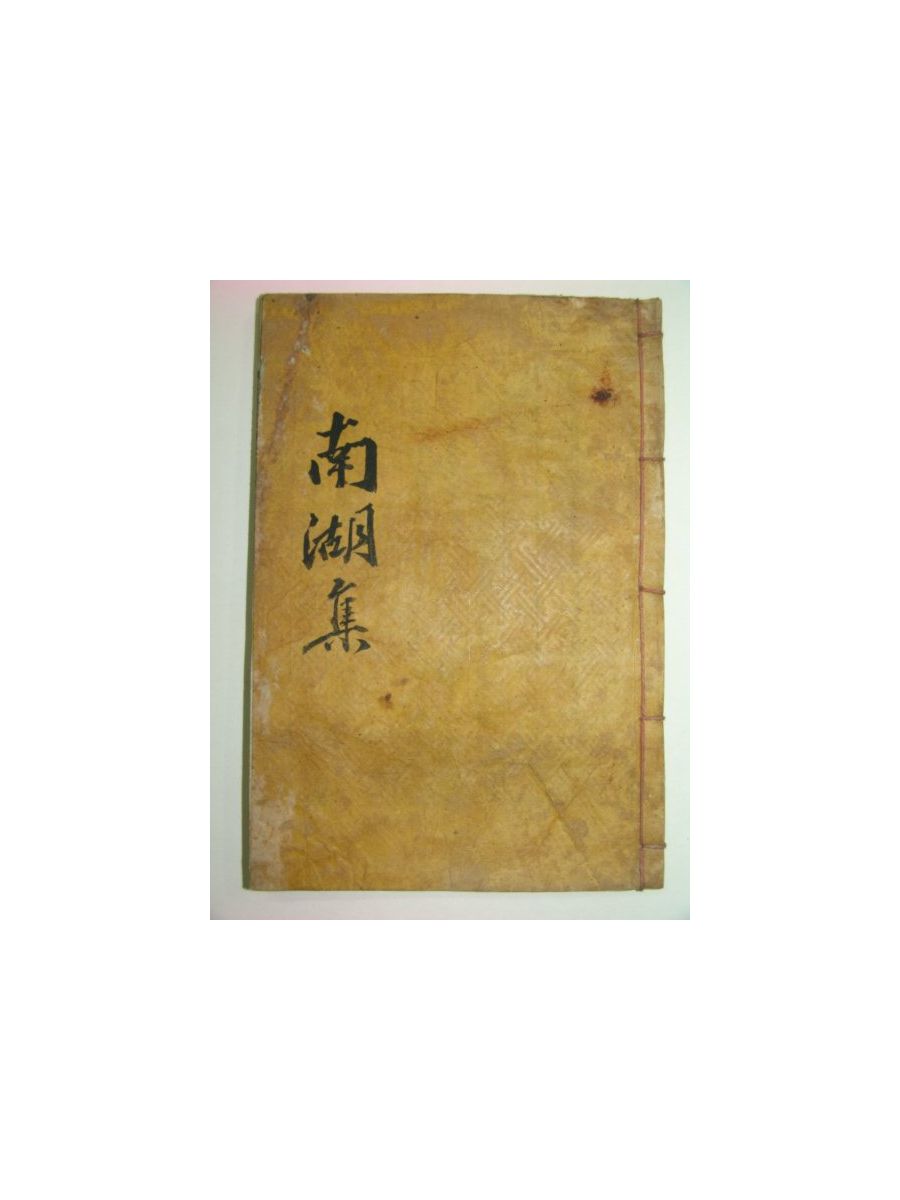 南湖集